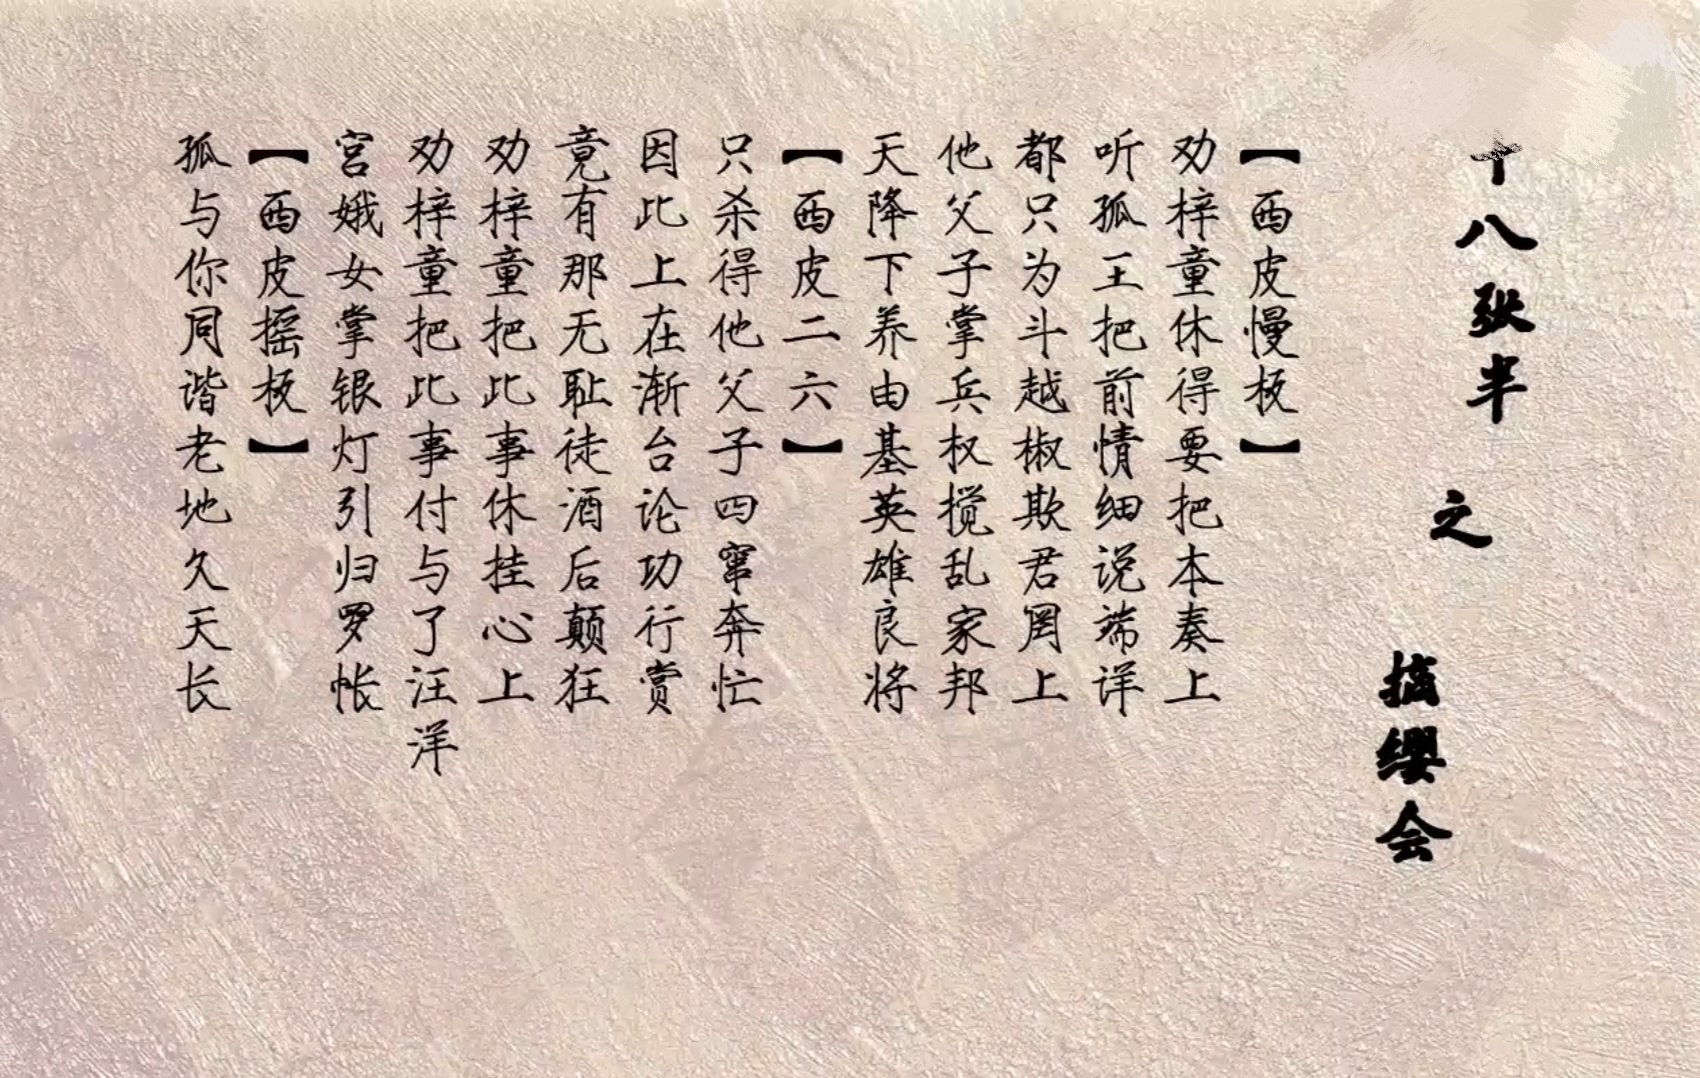 十八张半
之
摘缨会
【西皮慢板】
劝梓童休得要把本奏上
听孤王把前情细说端详
都只为斗越椒欺君罔上
他父子掌兵权搅乱家邦
天降下养由基英雄良将
【西皮二六】
只杀得他父子四窜奔忙
因此上在渐台论功行赏
竟有那无耻徒酒后颠狂
劝梓童把此事休挂心上
劝梓童把此事付与了汪洋
宫娥女掌银灯引归罗帐
【西皮摇板】
孤与你同谐老地久天长